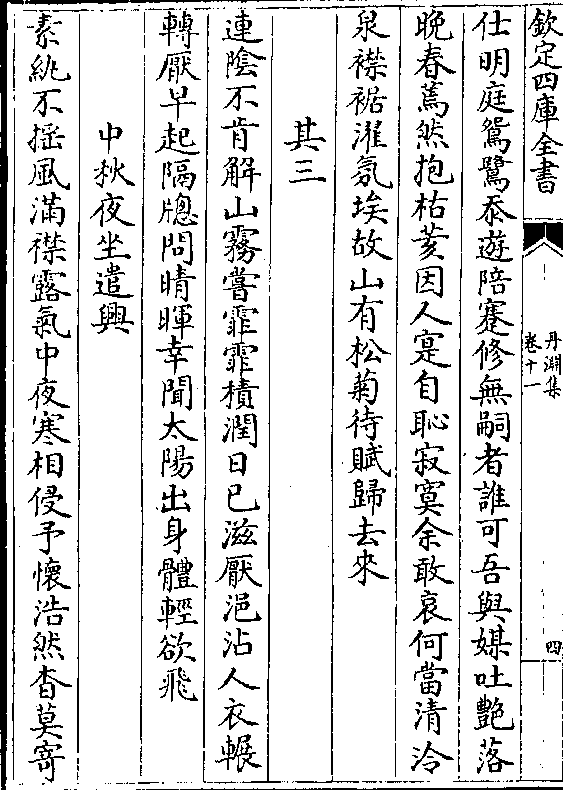 欽定四庫全書
丹淵集
卷十一
四
仕明庭鴛鷺忝遊陪蹇修無嗣者誰可吾與媒吐艷落
晚春蔫然抱枯荄因人寔自恥寂寞余敢哀何當清泠
泉襟裾濯氛埃故山有松菊待賦歸去來
其三
連陰不肯解山霧嘗霏霏積潤日已滋厭浥沾人衣輾
轉厭早起隔牎問晴暉幸聞太陽出身體輕欲飛
中秋夜坐遣興
素紈不揺風滿襟露氣中夜寒相侵予懷浩然杳莫寄